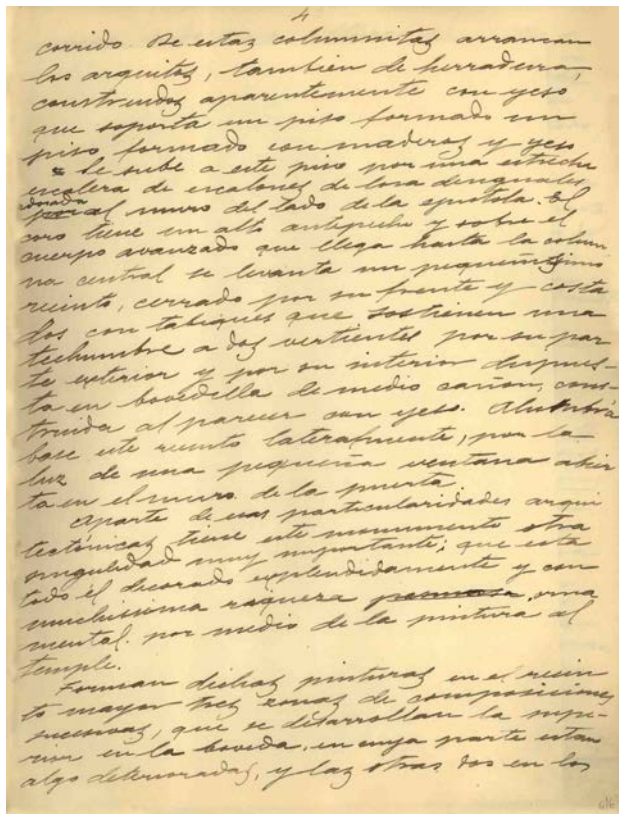 4
corrido. De estas columnitas arrancan
los arquitos, también de herradura,
construidos aparentemente con yeso
que soporta un piso formado un
piso formado con maderas y yeso
Se sube a este piso por una estrecha
escalera de escalones de losa desiguales
adosada
por al muro del lado de la epistola. El
coro tiene un alto antepecho y sobre el
cuerpo avanzado que llega hasta la colum
na central se levanta un pequeñísimo
recinto, cerrado por su frente y costa
dos con tabiques que sostienen una
techumbre a dos vertientes por su par
te exterior y por su interior dispues-
ta en bovedilla de medio cañon, cons-
truida al parecer con yeso. Alumbra
base este recinto lateralmente, por la
luz de una pequeña ventana abier
ta en el muro de la puerta.
Aparte de esas particularidades arqui
tectónicas tiene este monumento otra
singulidad muy importante; que esta
todo el decorado explendidamente y con
muchisima riqueza orna
mental. por medio de la pintura al
temple.
Forman dichas pinturas en el recin
to mayor tres zonas de composiciones
sucesivas, que se desarrollan la supe-
rior en la boveda, en cuya parte estan
algo deterioradas, y las otras dos en los
616